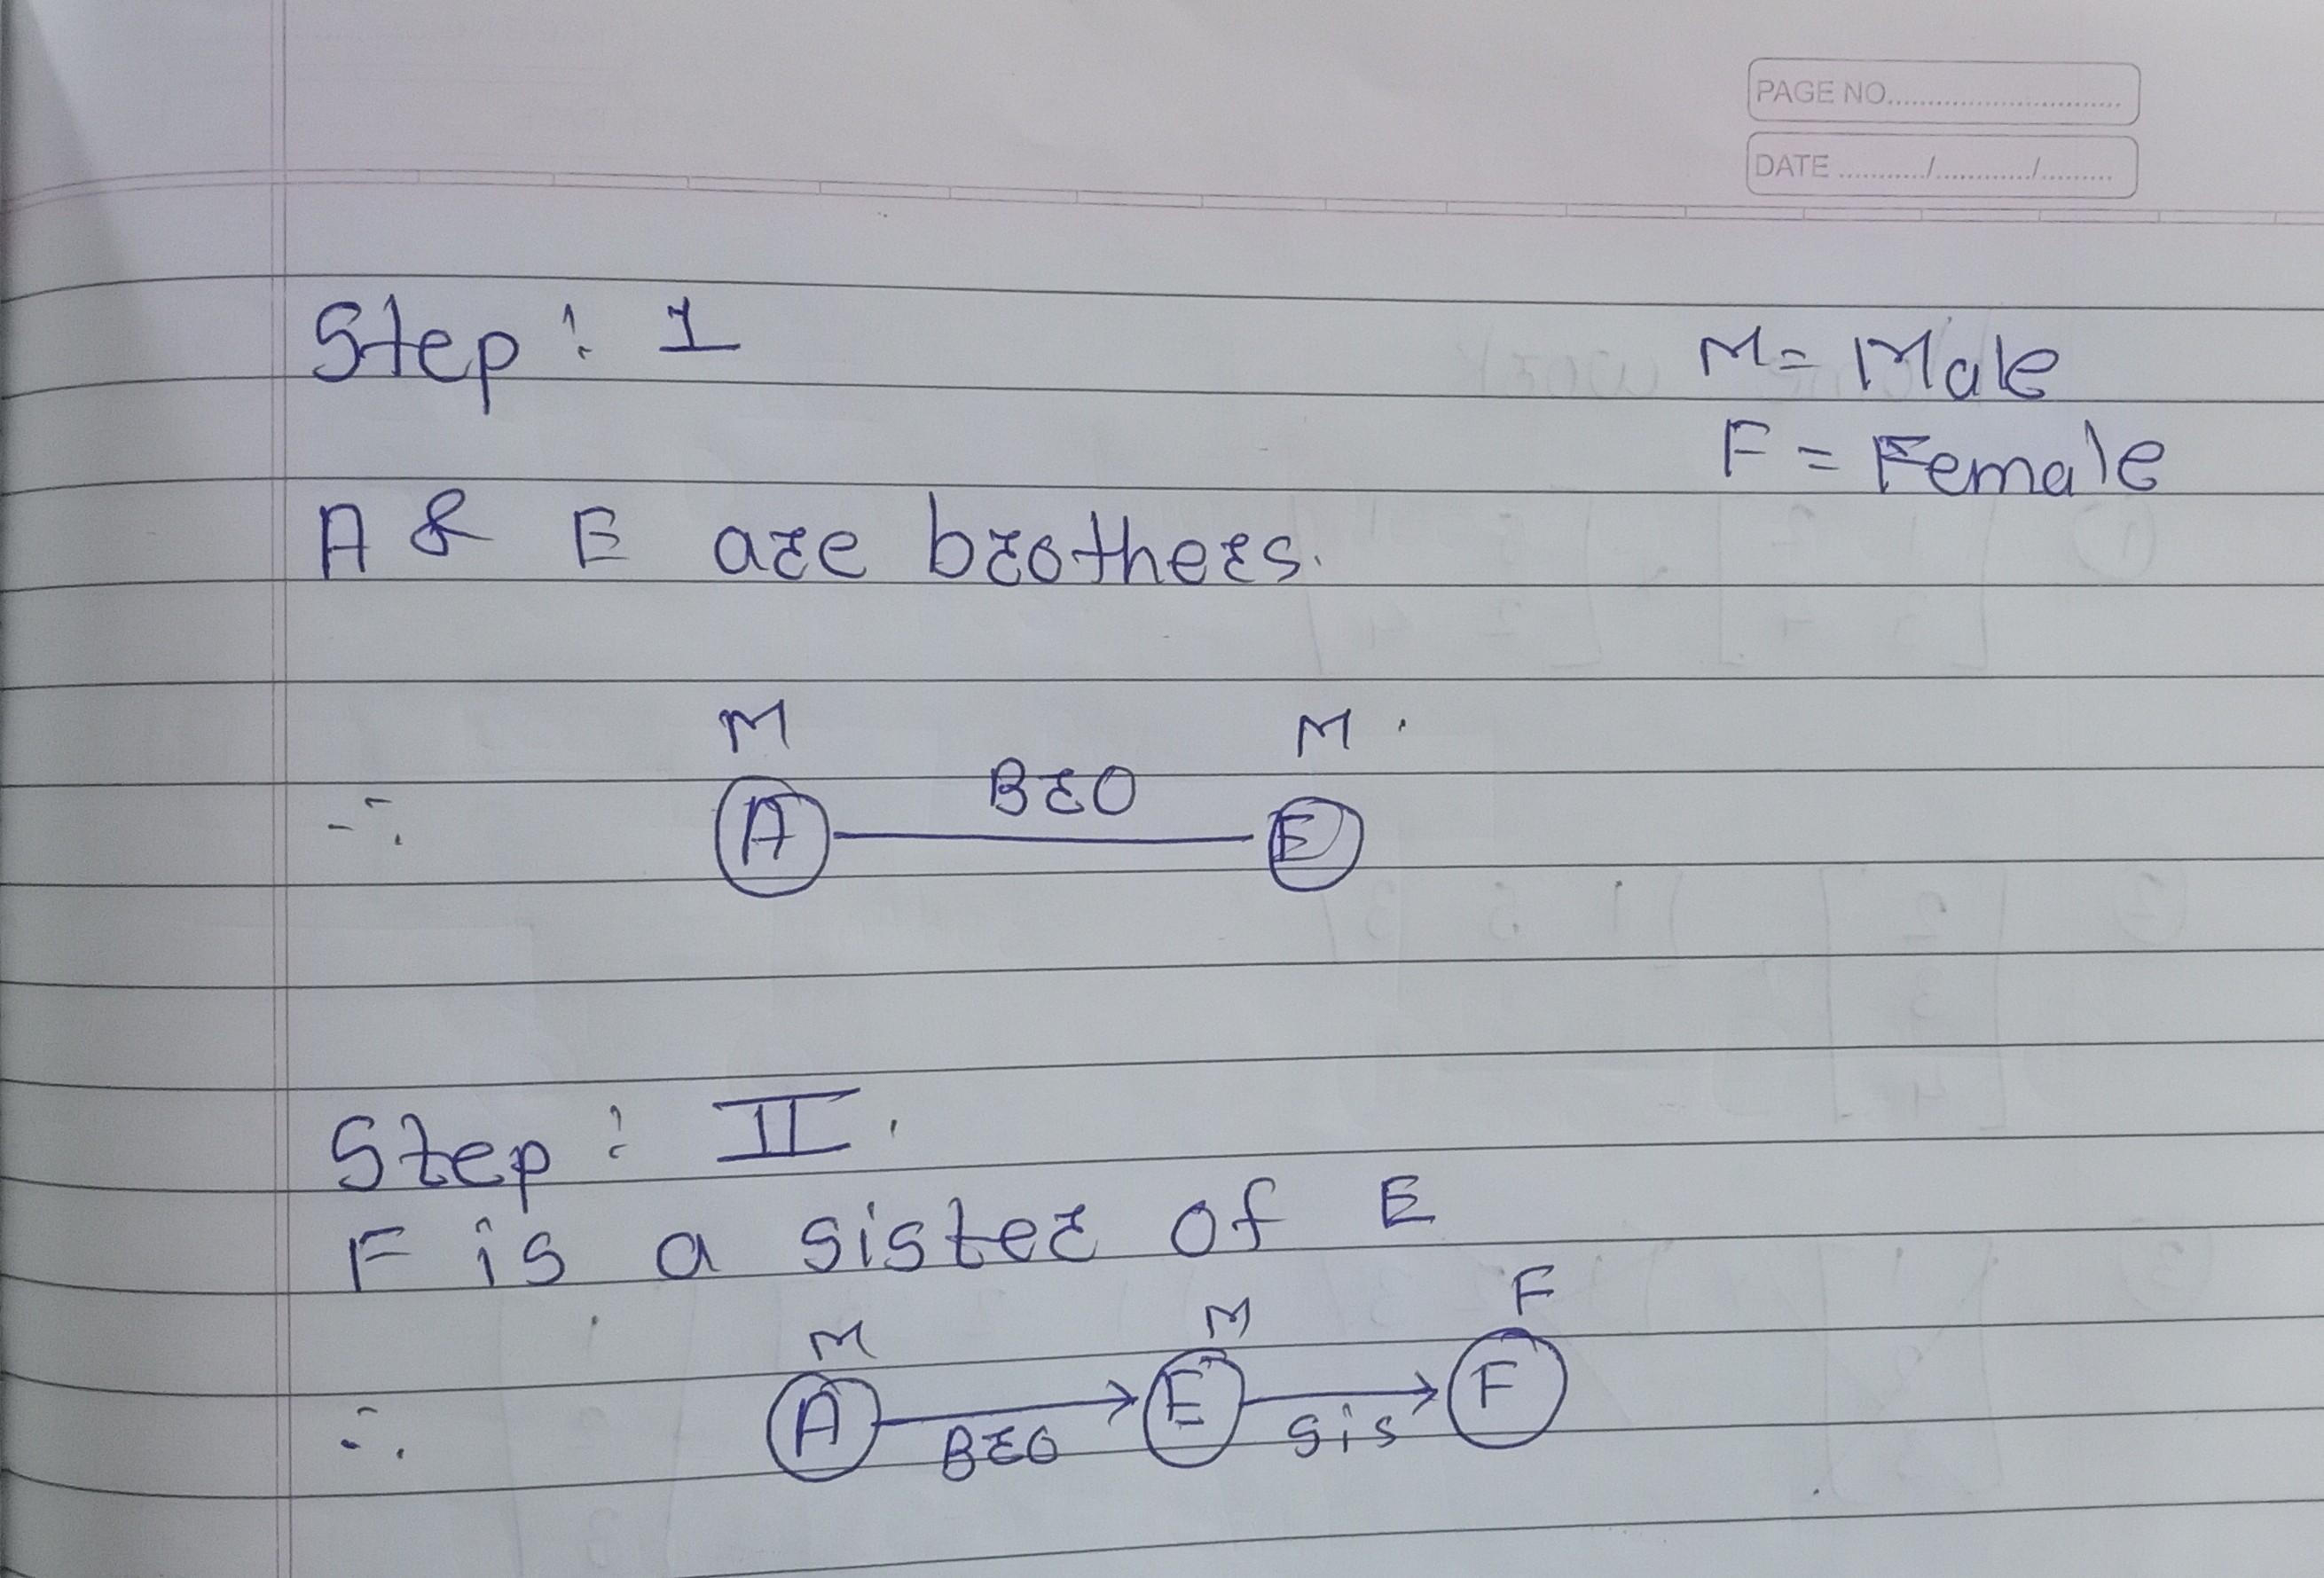 PAGE NO.............................
DATE .........../............/.........
Step : 1
M = Male
F = Female
A & E are brothers.
M M
∴ A Bro E
Step : II.
F is a sister of E
M M F
∴ A Bro E sis F